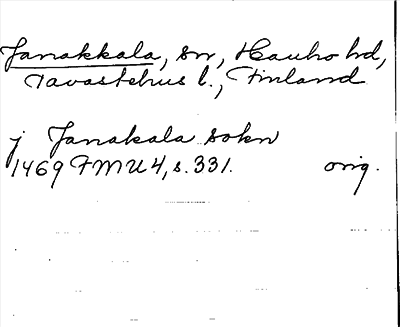 Janakkala, sn, Hauho hd,
Tavastehus l., Finland
j Janakala sokn
1469 FMU 4, s. 331. orig.